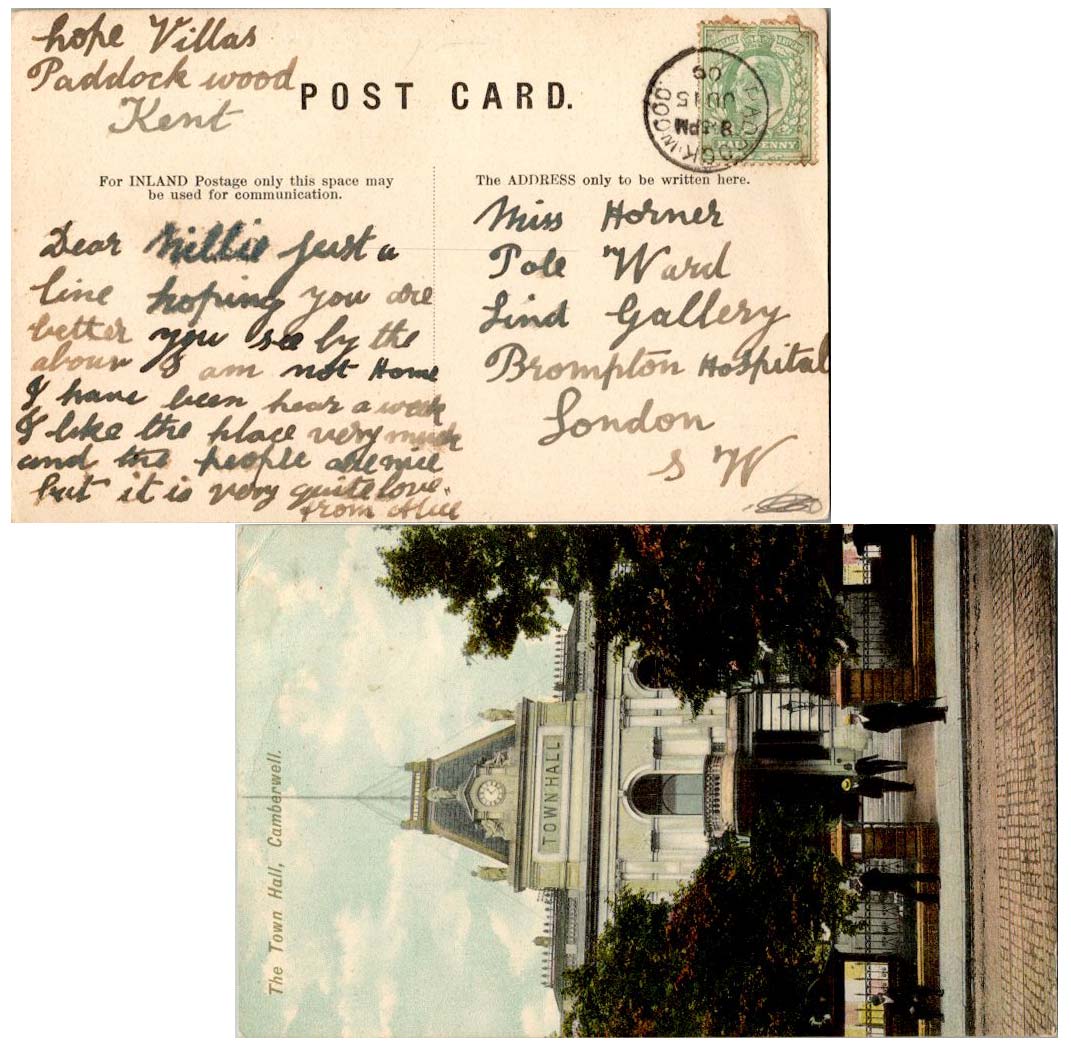 hope Villas
Paddock wood
Kent
POST CARD.
PADDOCK WOOD
8 PM
JU 15
06
HALFPENNY
For INLAND Postage only this space may
be used for communication.
The ADDRESS only to be written here.
Dear Millie just a
line hoping you are
better you see by the
abour I am not Home
I have been hear a week
I like the place very much
and the people are nice
but it is very quite love.
from Alice
Miss Horner
Pole Ward
Lind Gallery
Brompton Hospital
London
S W
The Town Hall, Camberwell.
TOWN HALL